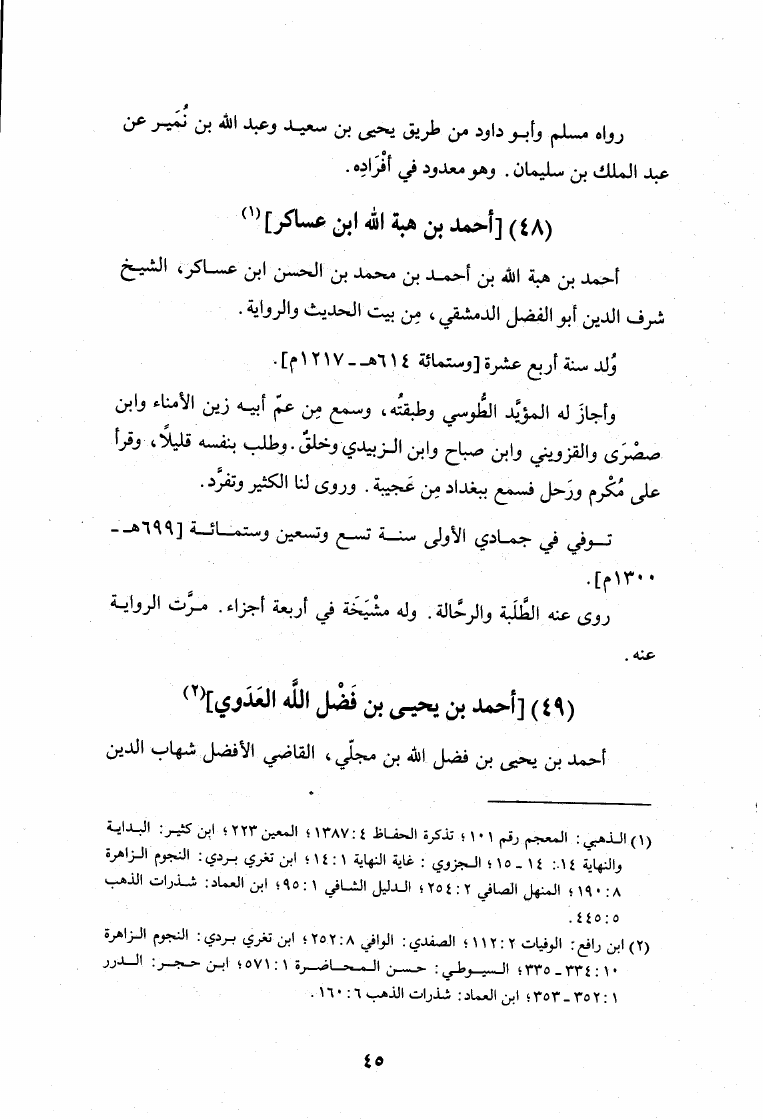 رواه مسلم وأبو داود من طريق يحيى بن سعيد وعبد الله بن نُمَير عن
عبد الملك بن سليمان. وهو معدود في أفْرَادِه.
(٤٨) [أحمد بن هبة الله ابن عساكر](١)
أحمد بن هبة الله بن أحمد بن محمد بن الحسن ابن عساكر، الشيخ
شرف الدين أبو الفضل الدمشقي، مِن بيت الحديث والرواية.
وُلد سنة أربع عشرة [وستمائة ٦١٤هـ - ١٢١٧م].
وأجازَ له المؤيَّد الطُّوسي وطبقتُه، وسمع مِن عمّ أبيه زين الأمناء وابن
صصْرَى والقزويني وابن صباح وابن الزبيدي وخلقٌ. وطلب بنفسه قليلاً، وقرأ
على مُكْرم ورَحل فسمع ببغداد مِن عَجيبة. وروى لنا الكثير وتفرَّد.
تـوفي في جمادي الأولى سنـة تسع وتسعين وستمـائـة [٦٩٩هـ -
١٣٠٠م].
روى عنه الطَّلَبة والرحَّالة. وله مشْيَخَة في أربعة أجزاء. مرَّت الرواية
عنه.
(٤٩) [أحمد بن يحيـى بن فَضْل اللَّه العَدَوي](٢)
أحمد بن يحيى بن فضل الله بن مجلّي، القاضي الأفضل شهاب الدين
(١) الذهبي: المعجم رقم ١٠١؛ تذكرة الحفاظ ٤: ١٣٨٧؛ المعين ٢٢٣؛ ابن كثير: البداية
والنهاية ١٤: ١٤ - ١٥؛ الجزوي: غاية النهاية ١: ١٤؛ ابن تغري بردي: النجوم الزاهرة
٨: ١٩٠؛ المنهل الصافي ٢: ٢٥٤؛ الدليل الشافي ١: ٩٥؛ ابن العماد: شذرات الذهب
٥: ٤٤٥.
(٢) ابن رافع: الوفيات ٢: ١١٢؛ الصفدي: الوافي ٨: ٢٥٢؛ ابن تغري بردي: النجوم الزاهرة
١٠: ٣٣٤ - ٣٣٥؛ السيـوطي: حسن المحـاضرة ١: ٥٧١؛ ابن حجـر: الـدرر
١: ٣٥٢ - ٣٥٣؛ ابن العماد: شذرات الذهب ٦: ١٦٠.
٤٥